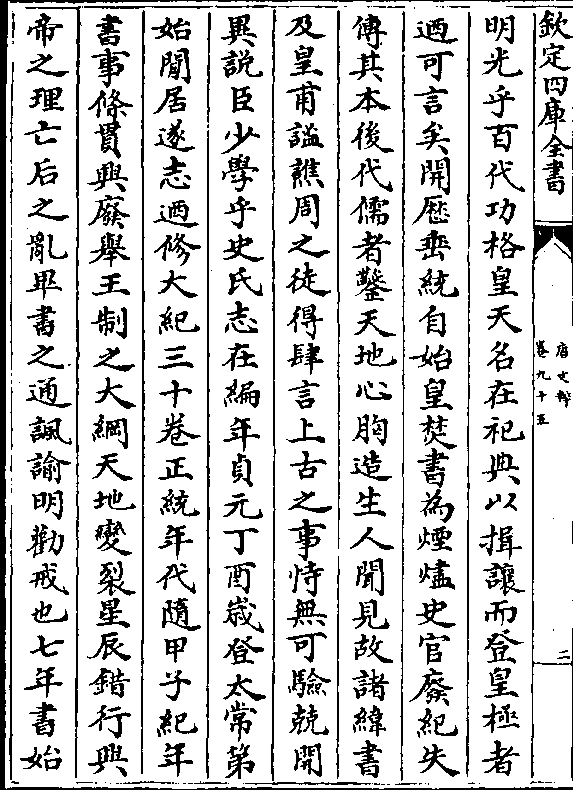 欽定四庫全書
唐文粹
卷九十五
三
明光乎百代功格皇天名在祀典以揖讓而登皇極者
迺可言矣開厯垂統自始皇焚書為煙燼史官廢紀失
傳其本後代儒者鑿天地心胸造生人聞見故諸緯書
及皇甫謐譙周之徒得肆言上古之事恃無可驗兢開
異説臣少學乎史氏志在編年貞元丁酉嵗登太常第
始閒居遂志迺修大紀三十卷正統年代隨甲子紀年
書事條貫興廢舉王制之大綱天地變裂星辰錯行興
帝之理亡后之亂畢書之通諷諭明勸戒也七年書始